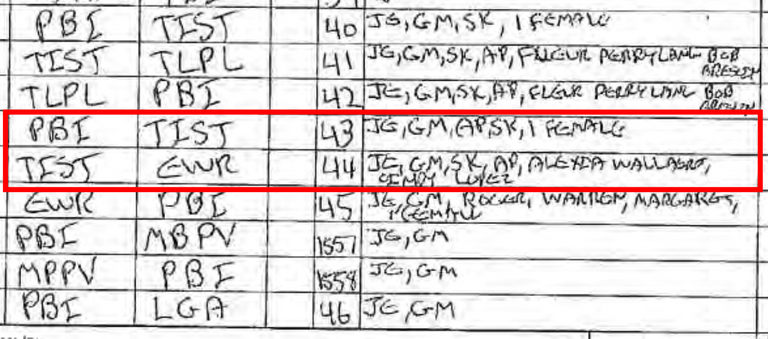 PBI TIST 40 JE, GM, SK, 1 FEMALE
TIST TLPL 41 JE, GM, SK, AP, FLEUR PERRYLANG BOB
TLPL PBI 42 JE, GM, SK, AP, FLEUR PERRYLANG BOB
PBI TIST 43 JE, GM, AP, SK, 1 FEMALE
TIST EWR 44 JE, GM, SK, AP, ALEXIA WALLAERT,
CINDY LOPEZ
EWR PBI 45 JE, GM, ROGER, WARREN, MARGARET,
1 FEMALE
PBI MBPV 1557 JE, GM
MPPV PBI 1558 JE, GM
PBI LGA 46 JE, GM